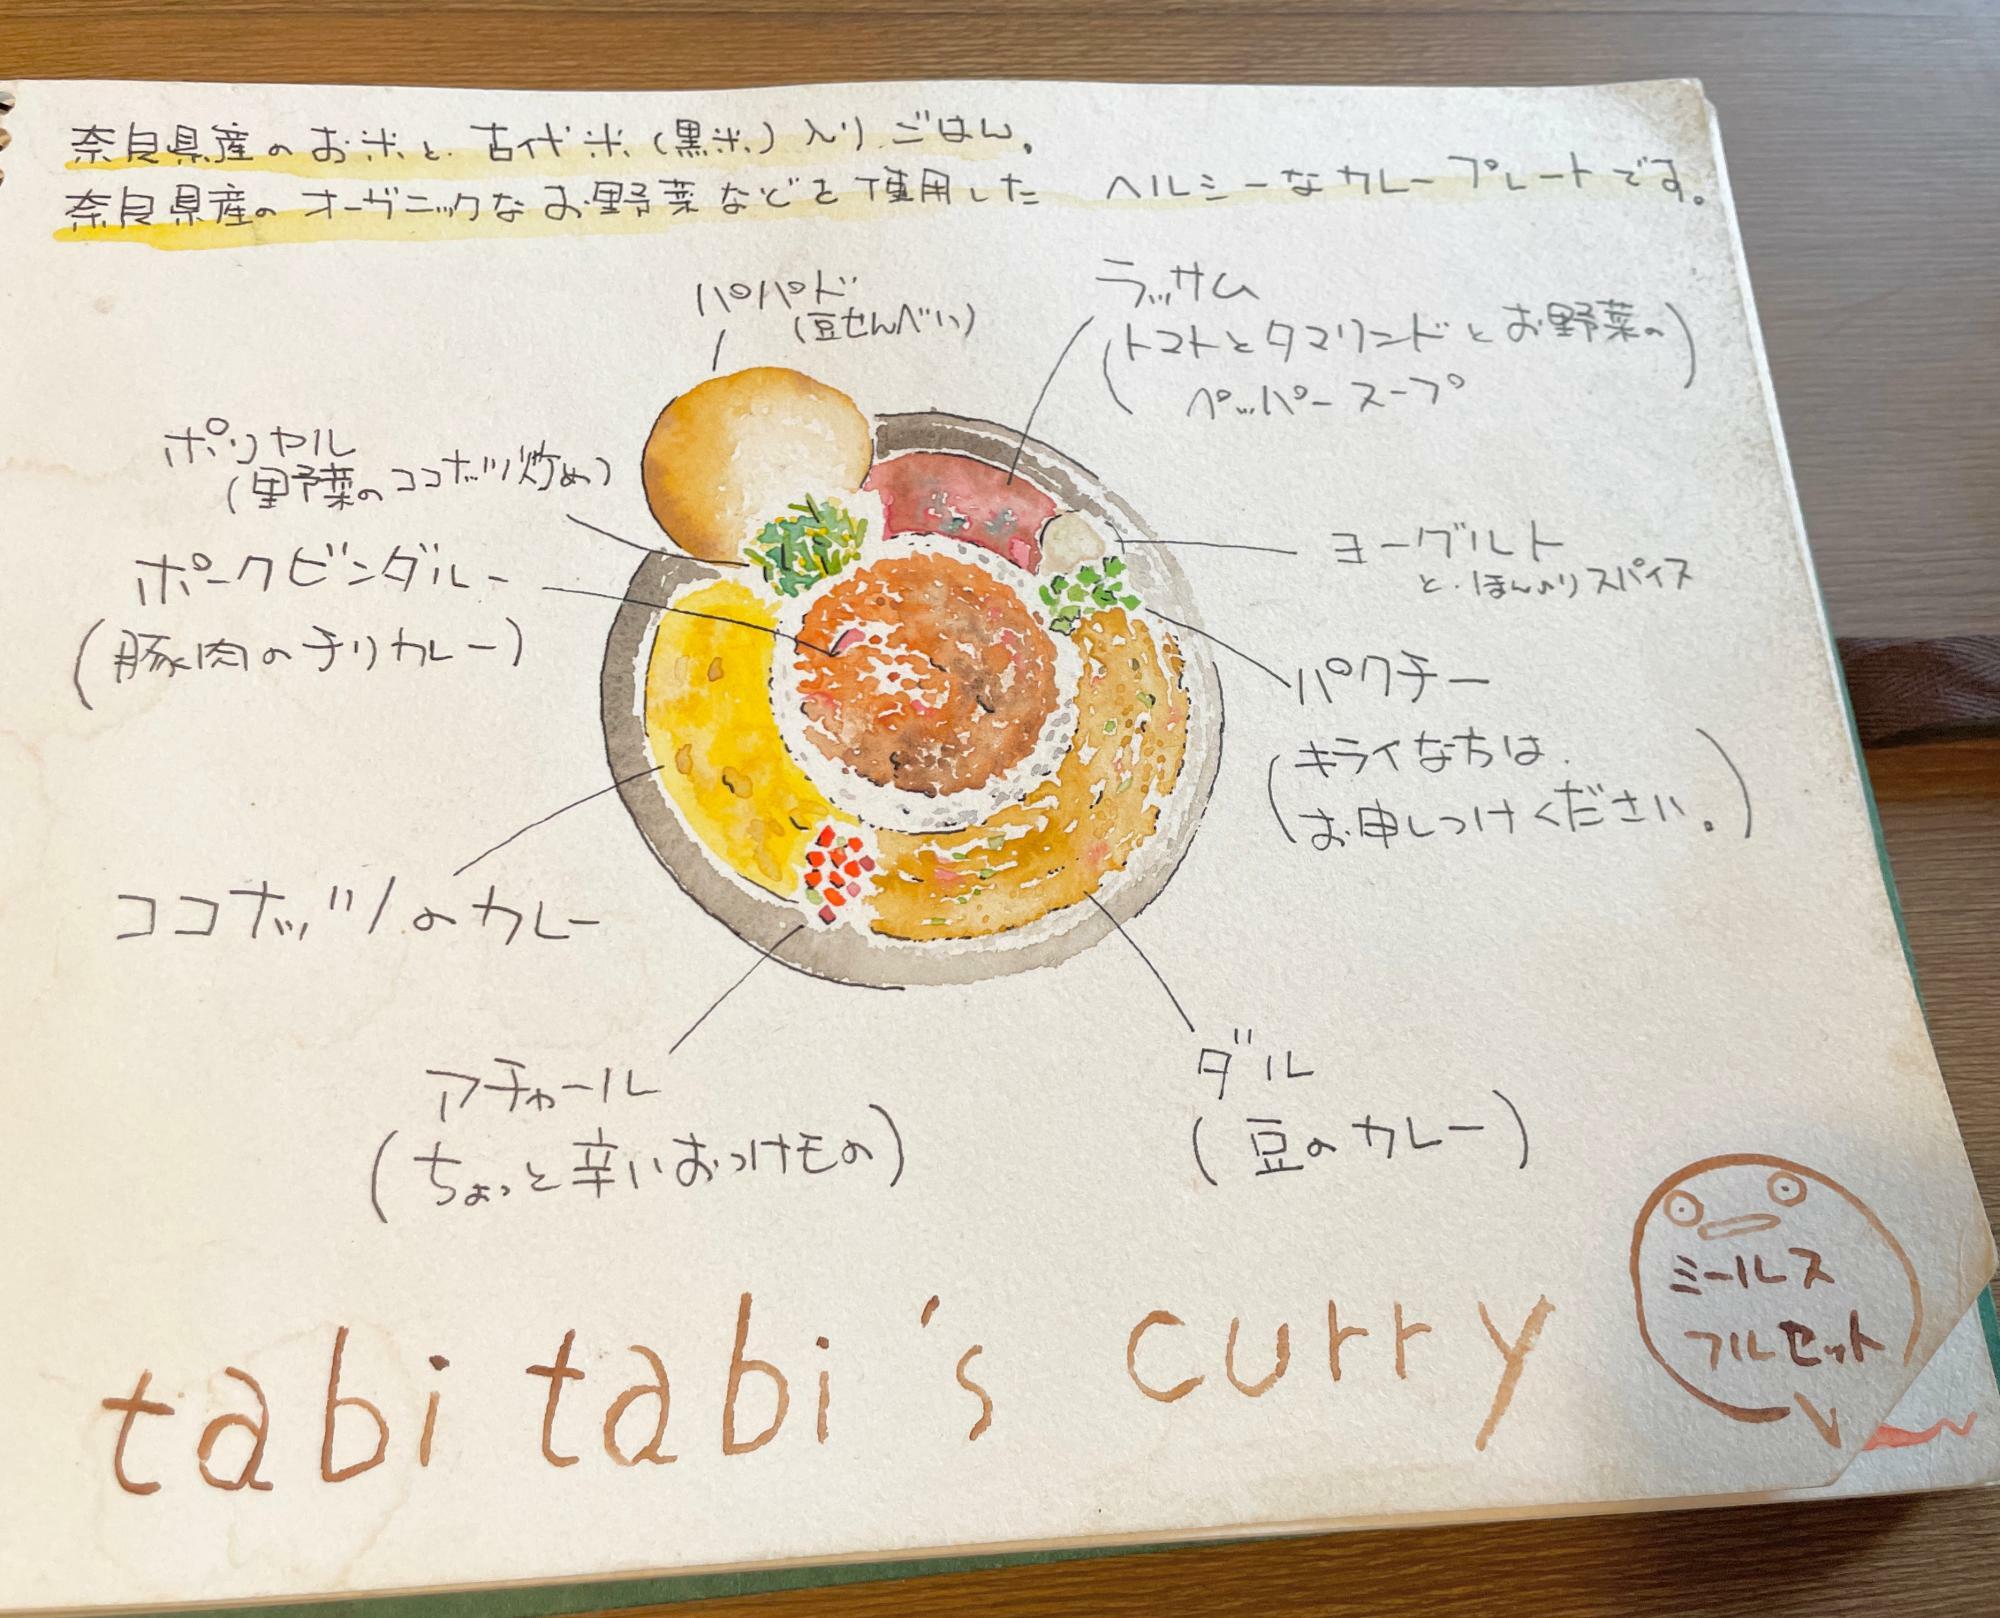 奈良県産のお米と、古代米(黒米)入りごはん。
奈良県産のオーガニックなお野菜などを使用した ヘルシーなカレープレートです。
パパド
(豆せんべい)
ラッサム
(トマトとタマリンドとお野菜の
ペッパースープ)
ポリヤル
(野菜のココナッツ炒め)
ポークビンダルー
(豚肉のチリカレー)
ヨーグルト
と、ほんのりスパイス
パクチー
(キライな方は、
お申しつけください。)
ココナッツのカレー
アチャール
(ちょっと辛いおつけもの)
ダル
(豆のカレー)
ミールス
フルセット
tabi tabi's curry